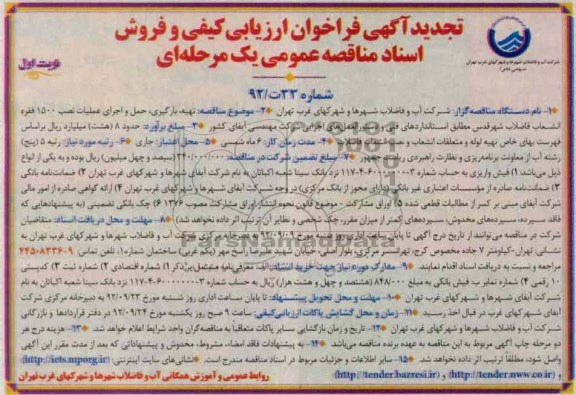 تجدید آگهی فراخوان ارزیابی کیفی و فروش
اسناد مناقصه عمومی یک مرحله‌ای
نوبت اول
شرکت آب و فاضلاب شهرها و شهرکهای غرب تهران
(سهامی خاص)
شماره ۳۳ت/۹۲
۱- نام دستگاه مناقصه‌گزار: شرکت آب و فاضلاب شهرها و شهرکهای غرب تهران ۲- موضوع مناقصه: تهیه، بارگیری، حمل و اجرای عملیات نصب ۱۵۰۰ فقره
انشعاب فاضلاب شهرقدس مطابق استانداردهای فنی و دستورالعمل‌های اجرایی شرکت مهندسی آبفای کشور ۳- مبلغ برآورد: حدود ۸ (هشت) میلیارد ریال براساس
فهرست بهای خاص تهیه لوله و متعلقات انشعاب و فاضلاب ۴- مدت زمان کار: ۶ ماه شمسی ۵- محل اعتبار: جاری ۶- رتبه مورد نیاز: رتبه ۵ (پنج)
رشته آب از معاونت برنامه‌ریزی و نظارت راهبردی رییس جمهور ۷- مبلغ تضمین شرکت در مناقصه: ۳۴۰/۰۰۰/۰۰۰ (سیصد و چهل میلیون) ریال بوده و به یکی از انواع
ذیل می‌باشد: ۱) فیش واریزی به حساب شماره ۳-۶۰۰۰۰۰۰-۴-۱۱۷ نزد بانک سینا شعبه اکباتان به نام شرکت آبفای شهرها و شهرکهای غرب تهران ۲) ضمانت‌نامه بانکی
۳) ضمانت‌نامه صادره از مؤسسات اعتباری غیر بانکی (دارای مجوز از بانک مرکزی) در وجه شرکت آبفای شهرها و شهرکهای غرب تهران ۴) ارائه گواهی صادره از امور مالی
شرکت آبفای مبنی بر کسر از مطالبات قطعی شده ۵) اوراق مشارکت - موضوع قانون نحوه انتشار اوراق مشارکت مصوب ۱۳۷۶ ۶) چک بانکی تضمینی (به پیشنهادهایی که
فاقد سپرده، سپرده‌های مخدوش، سپرده‌های کمتر از میزان مقرر، چک شخصی و نظایر آن ترتیب اثر داده نخواهد شد) ۸- مهلت و محل دریافت اسناد: متقاضیان
شرکت در مناقصه می‌توانند از تاریخ درج آگهی تا پایان ساعت اداری روز شنبه مورخ ۹۲/۰۹/۰۹ به دبیرخانه مرکزی شرکت آب و فاضلاب شهرها و شهرکهای غرب تهران به
نشانی: تهران - کیلومتر ۷ جاده مخصوص کرج، تهرانسر مرکزی، بلوار اصلی، خیابان شهید علیرضا راسخ مهر (یکم غربی) ساختمان شماره ۱۰، تلفن تماس ۹-۴۴۵۰۸۳۳۶
مراجعه و نسبت به دریافت اسناد اقدام نمایند. ۹- مدارک مورد نیاز جهت خرید اسناد: الف: معرفی‌نامه ۱) شماره اقتصادی ۲) شماره ثبت ۳) کدپستی
۱۰ رقمی ۴) شماره تماس ب: فیش بانکی به مبلغ ۸۴۸/۰۰۰ (هشتصد و چهل و هشت هزار) ریال به حساب شماره ۳-۶۰۰۰۰۰۰-۴-۱۱۷ نزد بانک سینا شعبه اکباتان به نام
شرکت آبفای شهرها و شهرکهای غرب تهران ۱۰- مهلت و محل تحویل پیشنهاد: تا پایان ساعت اداری روز شنبه مورخ ۹۲/۰۹/۲۳ به دبیرخانه مرکزی شرکت
آبفای شهرکهای غرب در قبال اخذ رسید ۱۱- زمان و محل گشایش پاکات ارزیابی کیفی: ساعت ۹ صبح روز یکشنبه مورخ ۹۲/۰۹/۲۴ در دفتر قراردادها و بازرگانی
شرکت آب و فاضلاب شهرها و شهرکهای غرب تهران ۱۲- تاریخ و زمان بازگشایی سایر پاکات متعاقباً به مناقصه‌گران واجد شرایط اعلام خواهد شد. ۱۳- هزینه درج هر
دو مرحله چاپ آگهی مربوط به این مناقصه به عهده برنده مناقصه می‌باشد ۱۴- به پیشنهادات فاقد امضاء، مشروط، مخدوش و پیشنهاداتی که بعد از مدت مقرر این آگهی
واصل شود، مطلقاً ترتیب اثر داده نخواهد شد. ۱۵- سایر اطلاعات و جزئیات مربوط در اسناد مناقصه مندرج است. نشانی‌های سایت اینترنتی (http://iets.mporg.ir)
و (http://tender.nww.co.ir) و (http://tender.bazresi.ir)
روابط عمومی و آموزش همگانی آب و فاضلاب شهرها و شهرکهای غرب تهران
ParsNamadData